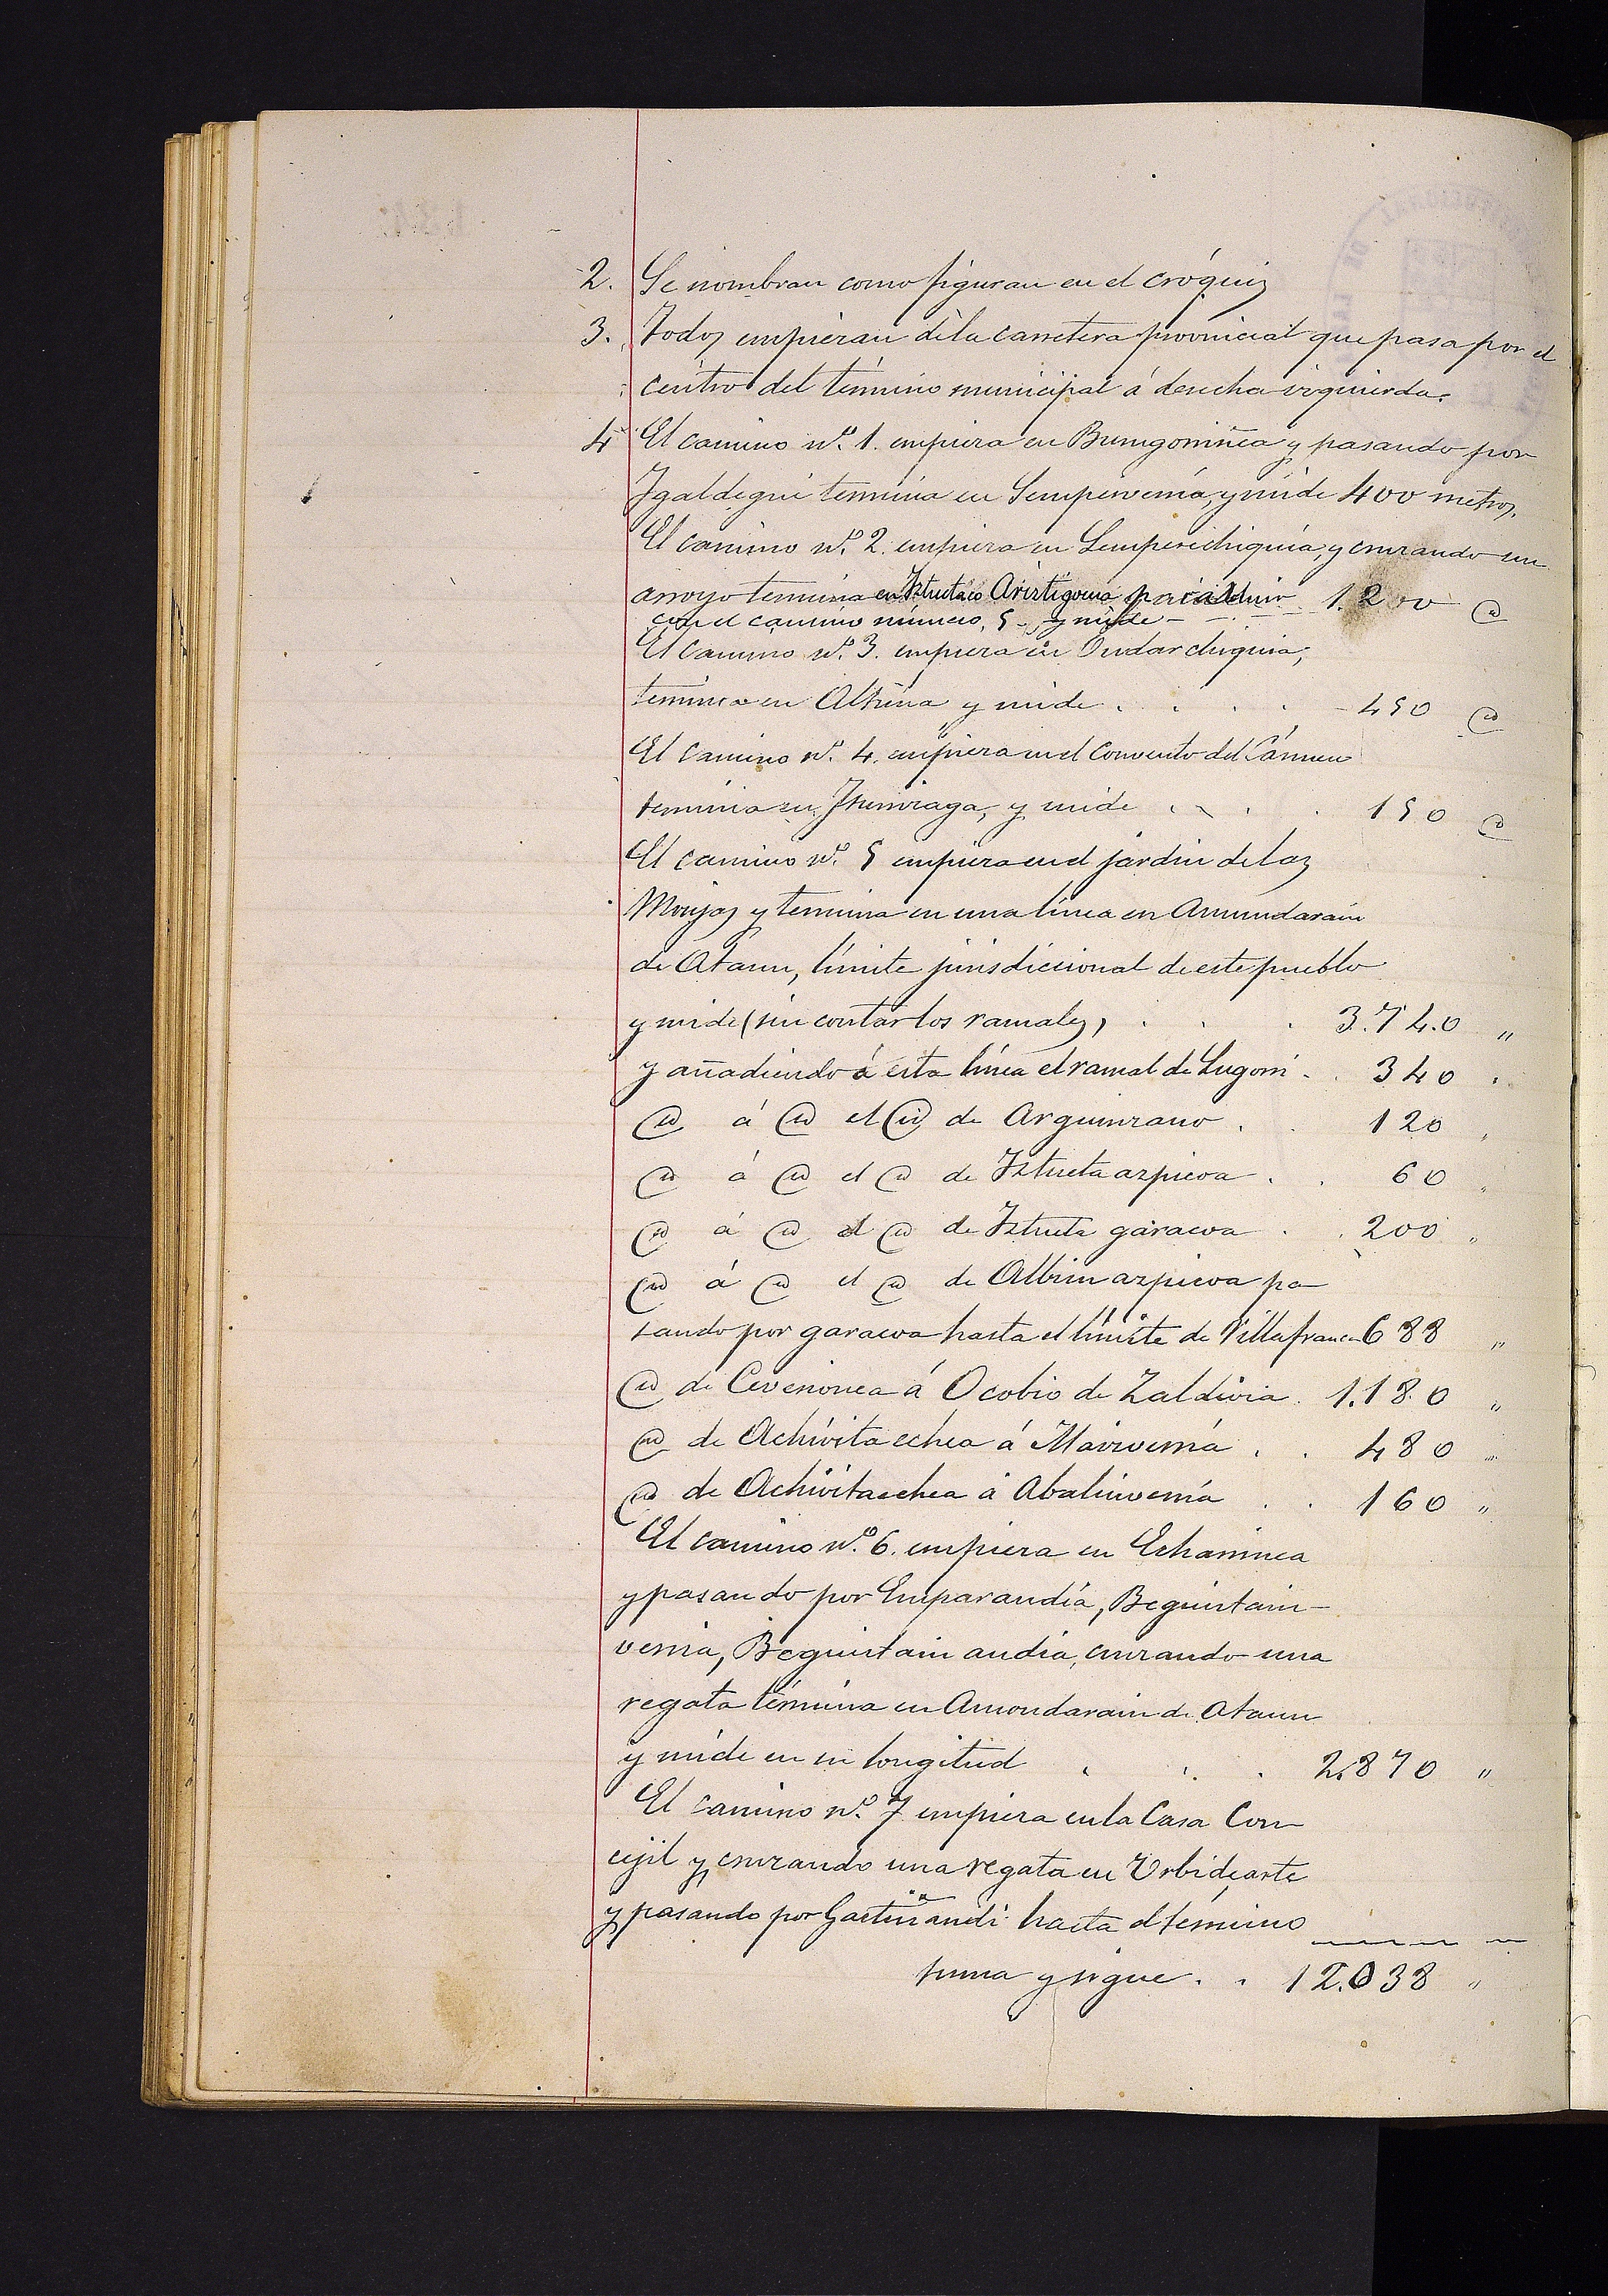 2. Se nombran como figuran en el cróquis
3. Todos empiezan de la carretera provincial que pasa por el
centro del término municipal á derecha izquierda.
4 El camino nº. 1. empieza en Burugoniñea y pasando por
Igaldegui termina en Semperverría, y mide 400 metros.
El camino nº. 2. empieza en Semperechiquia, y cruzando un
arroyo termina en Iztuetaco Aristigorria para unir 1.200 @
con el camino número, 5 - y mide -
El Camino nº. 3. empieza en Oudarchiquia,
termina en Altzina y mide . . . . 450 @
El Camino nº. 4. empieza en el Convento del Cármen
termina en Iturrizaga, y mide . . . 150 @
El camino nº. 5 empieza en el jardin de las
Monjas y termina en una línea en Amundarain
de Ataun, límite jurisdiccional de este pueblo
y mide (sin contar los ramales) . . . 3.740 „
y añadiendo á esta línea el ramal de Lugorri . . 340 „
@ á @ el @ de Arguinzano . . 120 „
@ á @ el @ de Iztueta azpicoa . . 60 „
@ á @ el @ de Iztueta garacoa . . 200 „
@ á @ el @ de Albin azpicoa pa-
sando por garacoa hasta el límite de Villafranca 688 „
@ de Cerverionea á Ocobio de Zaldivia . 1.180 „
@ de Achivitaechea á Mariverría . . 480 „
@ de Achivitaechea á Abalinverría . . 160 „
El camino nº. 6. empieza en Echaninea
y pasando por Emparandía, Beguiristain-
verria, Beguiristain andia, cruzando una
regata término en Amondarain de Ataun
y mide en su longitud . . . 2.870 „
El camino nº. 7 empieza en la Casa Con-
cejil y cruzando una regata en Urbidearte
y pasando por Gaztiñandi hasta el término
suma y sigue . . 12.038 „